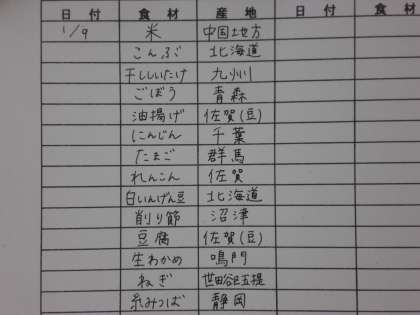 日付 食材 産地 日付 食材
1/9 米 中国地方
こんぶ 北海道
干ししいたけ 九州
ごぼう 青森
油揚げ 佐賀(豆)
にんじん 千葉
たまご 群馬
れんこん 佐賀
白いんげん豆 北海道
削り節 沼津
豆腐 佐賀(豆)
生わかめ 鳴門
ねぎ 世田谷区五提
糸みつば 静岡